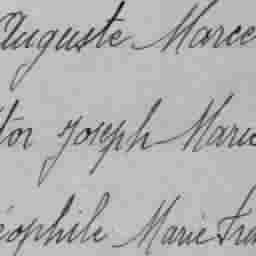 Auguste Marce
tor Joseph Marie
éophile Marie Fran